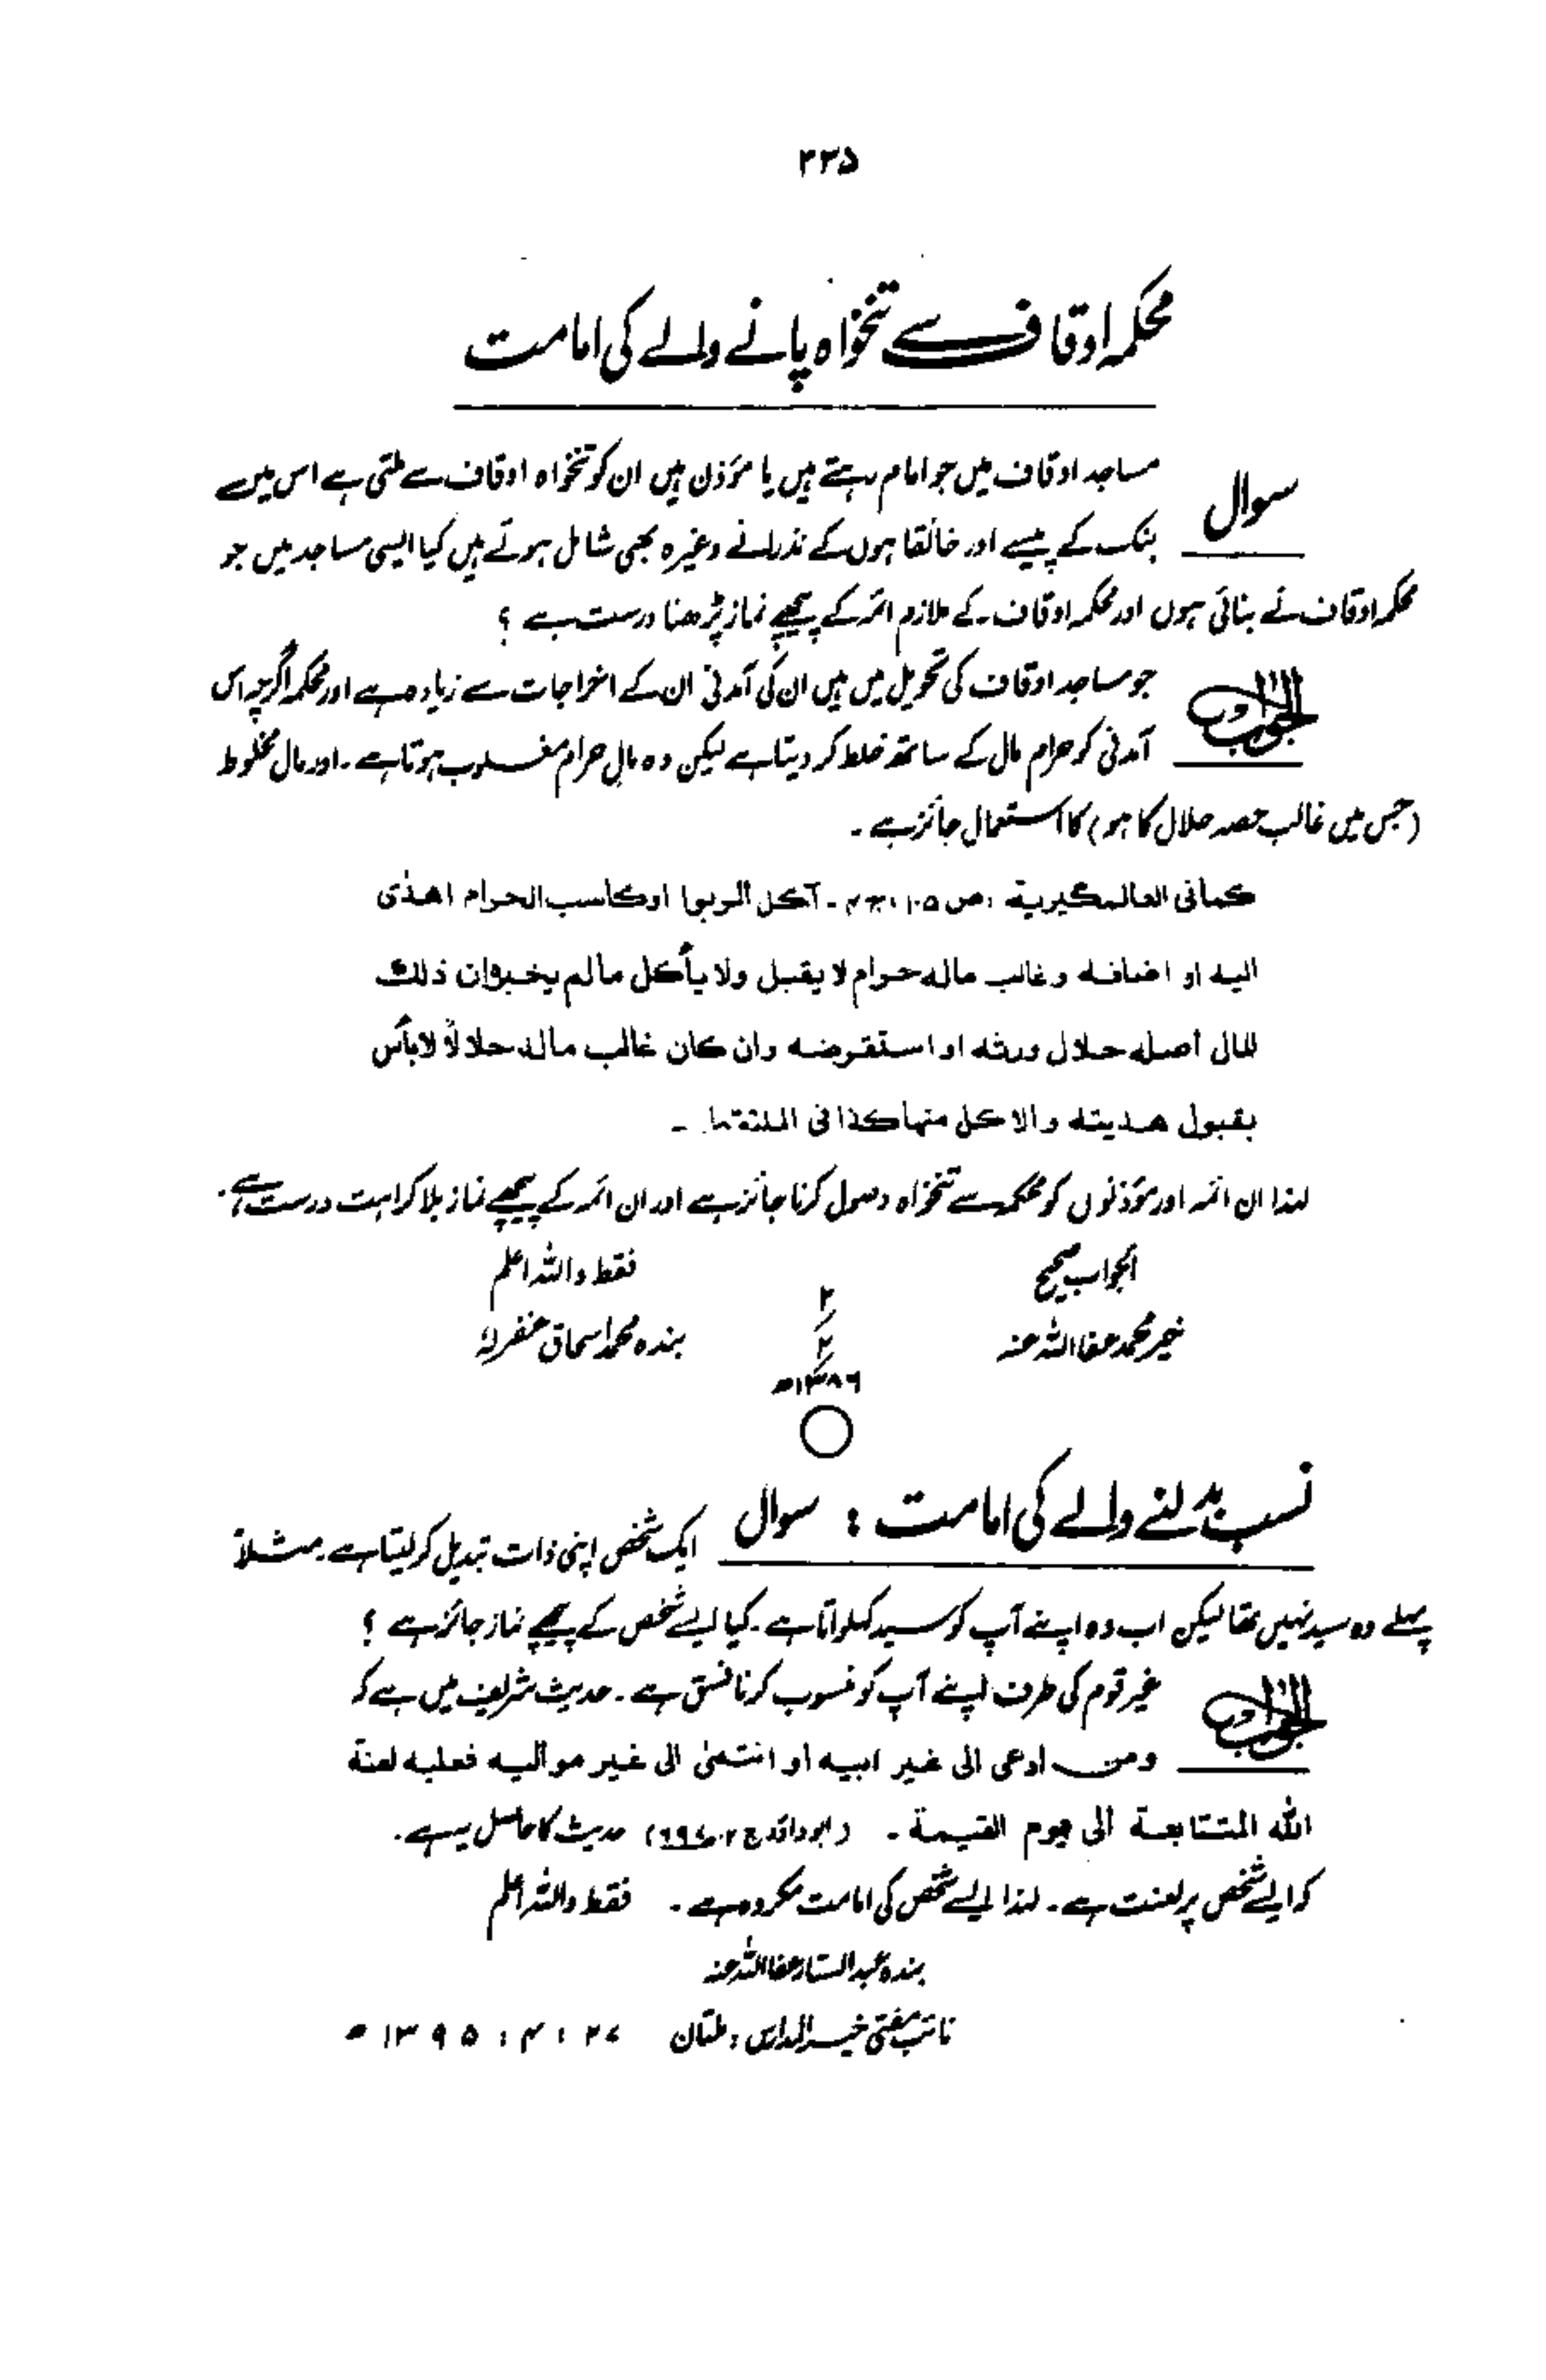 ۳۳۵
محکمہ اوقاف سے تنخواہ پانے والے کی امامت
سوال مساجد اوقاف میں جو امام رہتے ہیں یا مؤذن ہیں ان کو تنخواہ اوقاف سے ملتی ہے اس میں
بنک کے پیسے اور خانقاہوں کے نذرانے وغیرہ بھی شامل ہوتے ہیں کیا ایسی مساجد میں جو
محکمہ اوقاف نے بنائی ہوں اور محکمہ اوقاف کے ملازم ائمہ کے پیچھے نماز پڑھنا درست ہے ؟
الجواب جو مساجد اوقاف کی تحویل میں ہیں ان کی آمدنی ان کے اخراجات سے زیادہ ہے اور محکمہ اگرچہ اس
آمدنی کو حرام مال کے ساتھ خلط کر دیتا ہے لیکن وہ مالِ حرام مغلوب ہوتا ہے ۔ اور مال مخلوط
(جس میں غالب حصہ حلال کا ہو) کا استعمال جائز ہے ۔
کمافی العالمگیریة ، ص ۱۰۵، ج ۴ ۔ آکل الربوا اوکاسب الحرام اھدٰی
الیہ او اضافہ وغالب مالہ حرام لا یقبل ولا یأکل مالم یخبرہ ان ذلک
المال أصلہ حلال ورثہ او استقرضہ وان کان غالب مالہ حلالاً لا بأس
بقبول ھدیتہ والاکل منہا کذا فی الملتقط ۔
لہٰذا ان ائمہ اور مؤذنوں کو محکمہ سے تنخواہ وصول کرنا جائز ہے اور ان ائمہ کے پیچھے نماز بلا کراہت درست ہے ۔
الجواب صحیح فقط واللہ اعلم
خیر محمد عفا اللہ عنہ ۲/۲/۱۳۸۶ھ بندہ محمد اسحاق غفرلہ
نسب بدلنے والے کی امامت : سوال ایک شخص اپنی ذات تبدیل کر لیتا ہے ۔ مثلاً
پہلے وہ سید نہیں تھا لیکن اب وہ اپنے آپ کو سید کہلواتا ہے ۔ کیا ایسے شخص کے پیچھے نماز جائز ہے ؟
الجواب غیر قوم کی طرف اپنے آپ کو منسوب کرنا فسق ہے ۔ حدیث شریف میں ہے کہ
ومن ادعی الی غیر ابیہ او انتمیٰ الی غیر موالیہ فعلیہ لعنة
اللہ المتتابعة الی یوم القیٰمة ۔ (ابوداؤد ج ۲، ص ۶۹۷) حدیث کا حاصل یہ ہے ۔
کہ ایسے شخص پر لعنت ہے ۔ لہٰذا ایسے شخص کی امامت مکروہ ہے ۔ فقط واللہ اعلم
بندہ عبدالستار عفا اللہ عنہ
نائب مفتی خیر المدارس ، ملتان ۲۷ ؛ ۴ ؛ ۱۳۹۵ھ